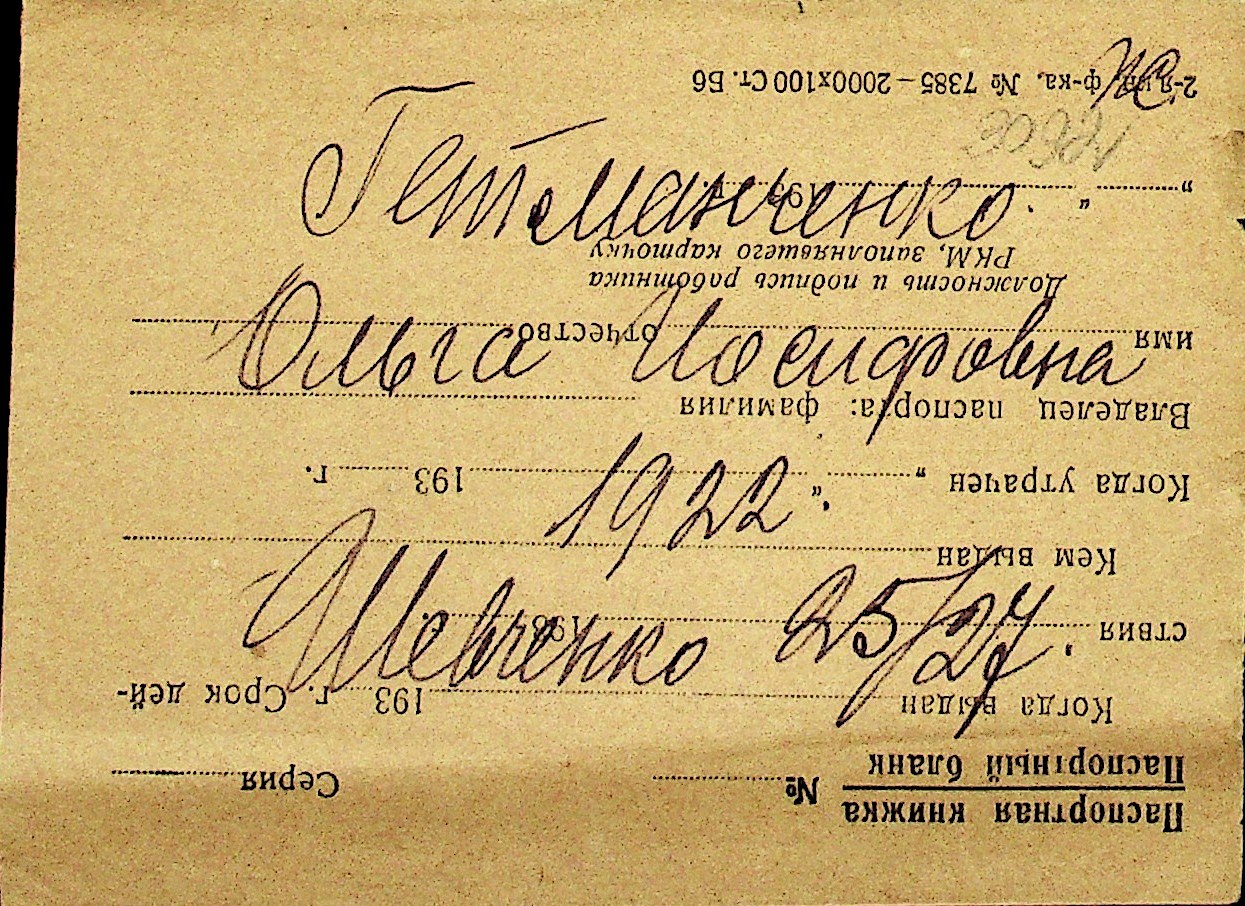 Гетманченко
Ольга Иосифовна
1922.
Шевченко 25/27.
Паспортная книжка
Паспортный бланк
№ Серия
Когда выдан 193 г. Срок дей-
ствия 193 г.
Кем выдан
Когда утрачен „ “ 193 г.
Владелец паспорта: фамилия
имя отчество
Должность и подпись работника
РКМ, заполнявшего карточку
„ “ 193 г.
2-я ф-ка, № 7385 — 2000х100 Ст. Б6